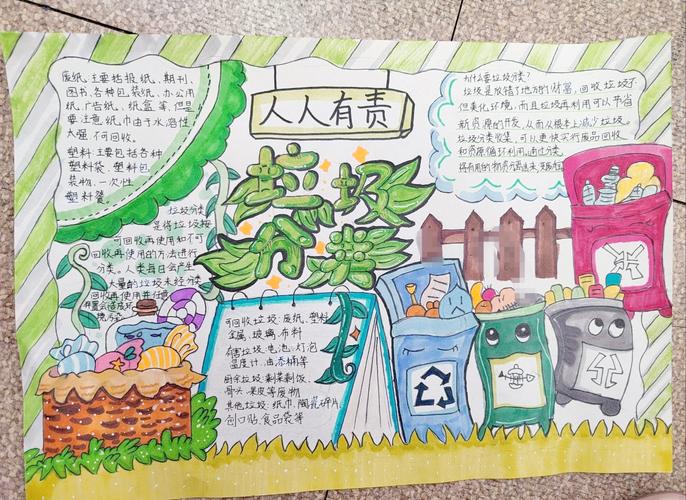 废纸:主要括报纸、期刊、
图书、各种包装纸、办公用
纸、广告纸、纸盒等,但是
要注意纸巾由于水溶性
太强不可回收。
塑料:主要包括各种
塑料袋、塑料包
装物、一次性
塑料餐
人人有责
垃圾
分类
为什么要垃圾分类?
垃圾是放错了地方的财富,回收垃圾不
但美化环境,而且垃圾再利用可以节省
新资源的开发,从而从根本上减少垃圾。
垃圾分类收集,可以更快实行废品回收
和资源循环利用。通过分类
将有用的物资
垃圾分类
是将垃圾按
可回收再使用和不可
回收再使用的方法进行
分类。人类每日会产生
大量的垃圾未经分类
回收再使用并任意
可回收垃圾:废纸、塑料
金属、玻璃、布料
有害垃圾:电池、灯泡
温度计、油漆桶等
厨余垃圾:剩菜剩饭、
骨头、果皮等废物
其他垃圾:纸巾、陶瓷碎片、
创口贴、食品袋等